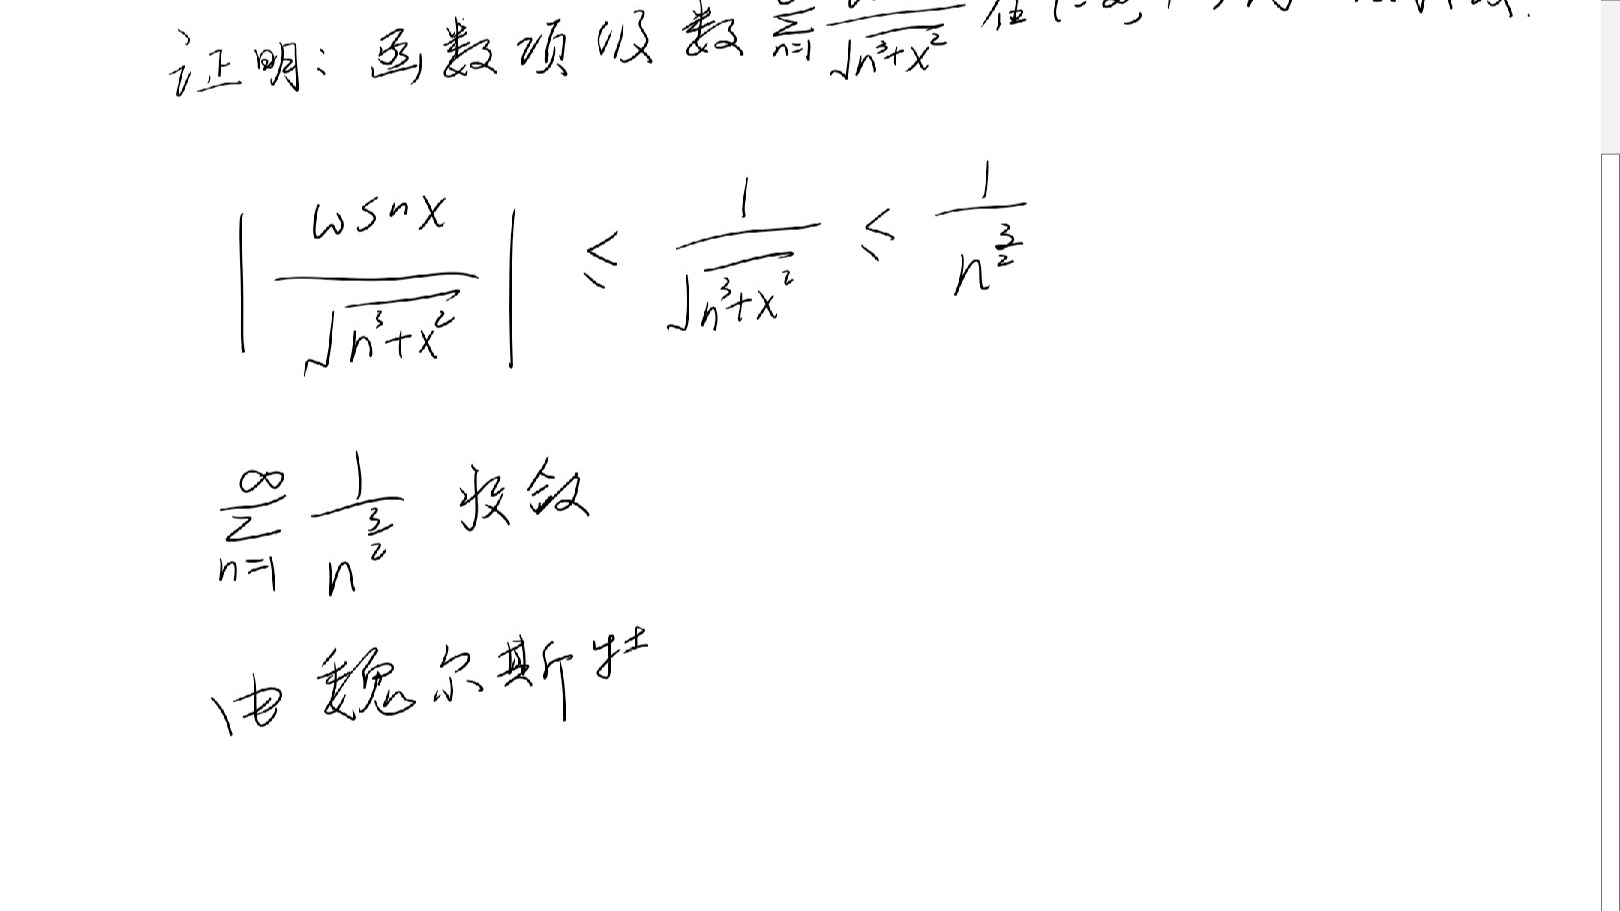 证明：函数项级数 \sum_{n=1} \frac{}{\sqrt{n^3+x^2}} 在
\left| \frac{\cos nx}{\sqrt{n^3+x^2}} \right| \le \frac{1}{\sqrt{n^3+x^2}} \le \frac{1}{n^{\frac{3}{2}}}
\sum_{n=1}^{\infty} \frac{1}{n^{\frac{3}{2}}} 收敛
由魏尔斯牡